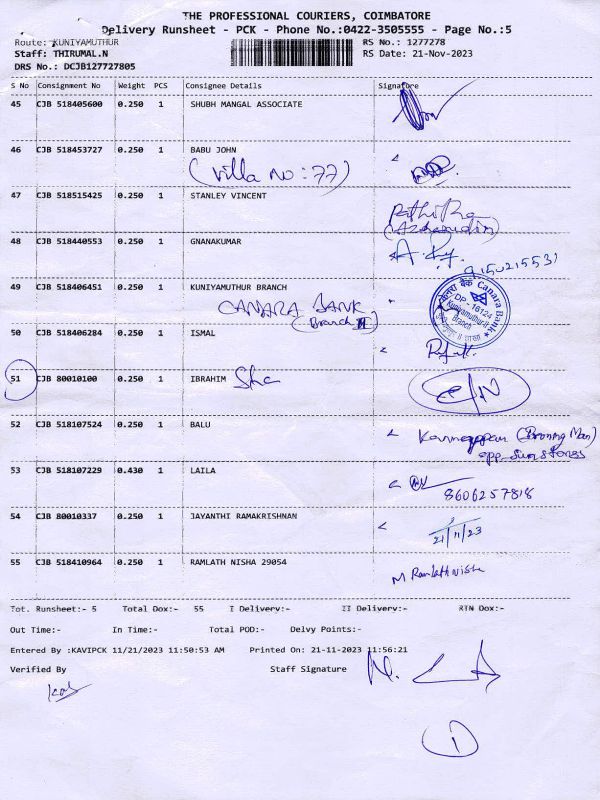 THE PROFESSIONAL COURIERS, COIMBATORE
Delivery Runsheet - PCK - Phone No.:0422-3505555 - Page No.:5
Route: KUNIYAMUTHUR RS No.: 1277278
Staff: THIRUMAL.N RS Date: 21-Nov-2023
DRS No.: DCJB127727805
S No Consignment No Weight PCS Consignee Details Signature
45 CJB 518405600 0.250 1 SHUBH MANGAL ASSOCIATE
46 CJB 518453727 0.250 1 BABU JOHN
(Villa No: 77)
47 CJB 518515425 0.250 1 STANLEY VINCENT
48 CJB 518440553 0.250 1 GNANAKUMAR
9150215531
49 CJB 518406451 0.250 1 KUNIYAMUTHUR BRANCH
CANARA BANK
(Branch)
Canara Bank
DP - 16124
Kuniyamuthur
Branch
50 CJB 518406284 0.250 1 ISMAL
51 CJB 80010100 0.250 1 IBRAHIM Sha
52 CJB 518107524 0.250 1 BALU
53 CJB 518107229 0.430 1 LAILA
8606257818
54 CJB 80010337 0.250 1 JAYANTHI RAMAKRISHNAN
21/11/23
55 CJB 518410964 0.250 1 RAMLATH NISHA 29054
M Ramlath nisha
Tot. Runsheet:- 5 Total Dox:- 55 I Delivery:- II Delivery:- RTN Dox:-
Out Time:- In Time:- Total POD:- Delvy Points:-
Entered By :KAVIPCK 11/21/2023 11:50:53 AM Printed On: 21-11-2023 11:56:21
Verified By Staff Signature
1